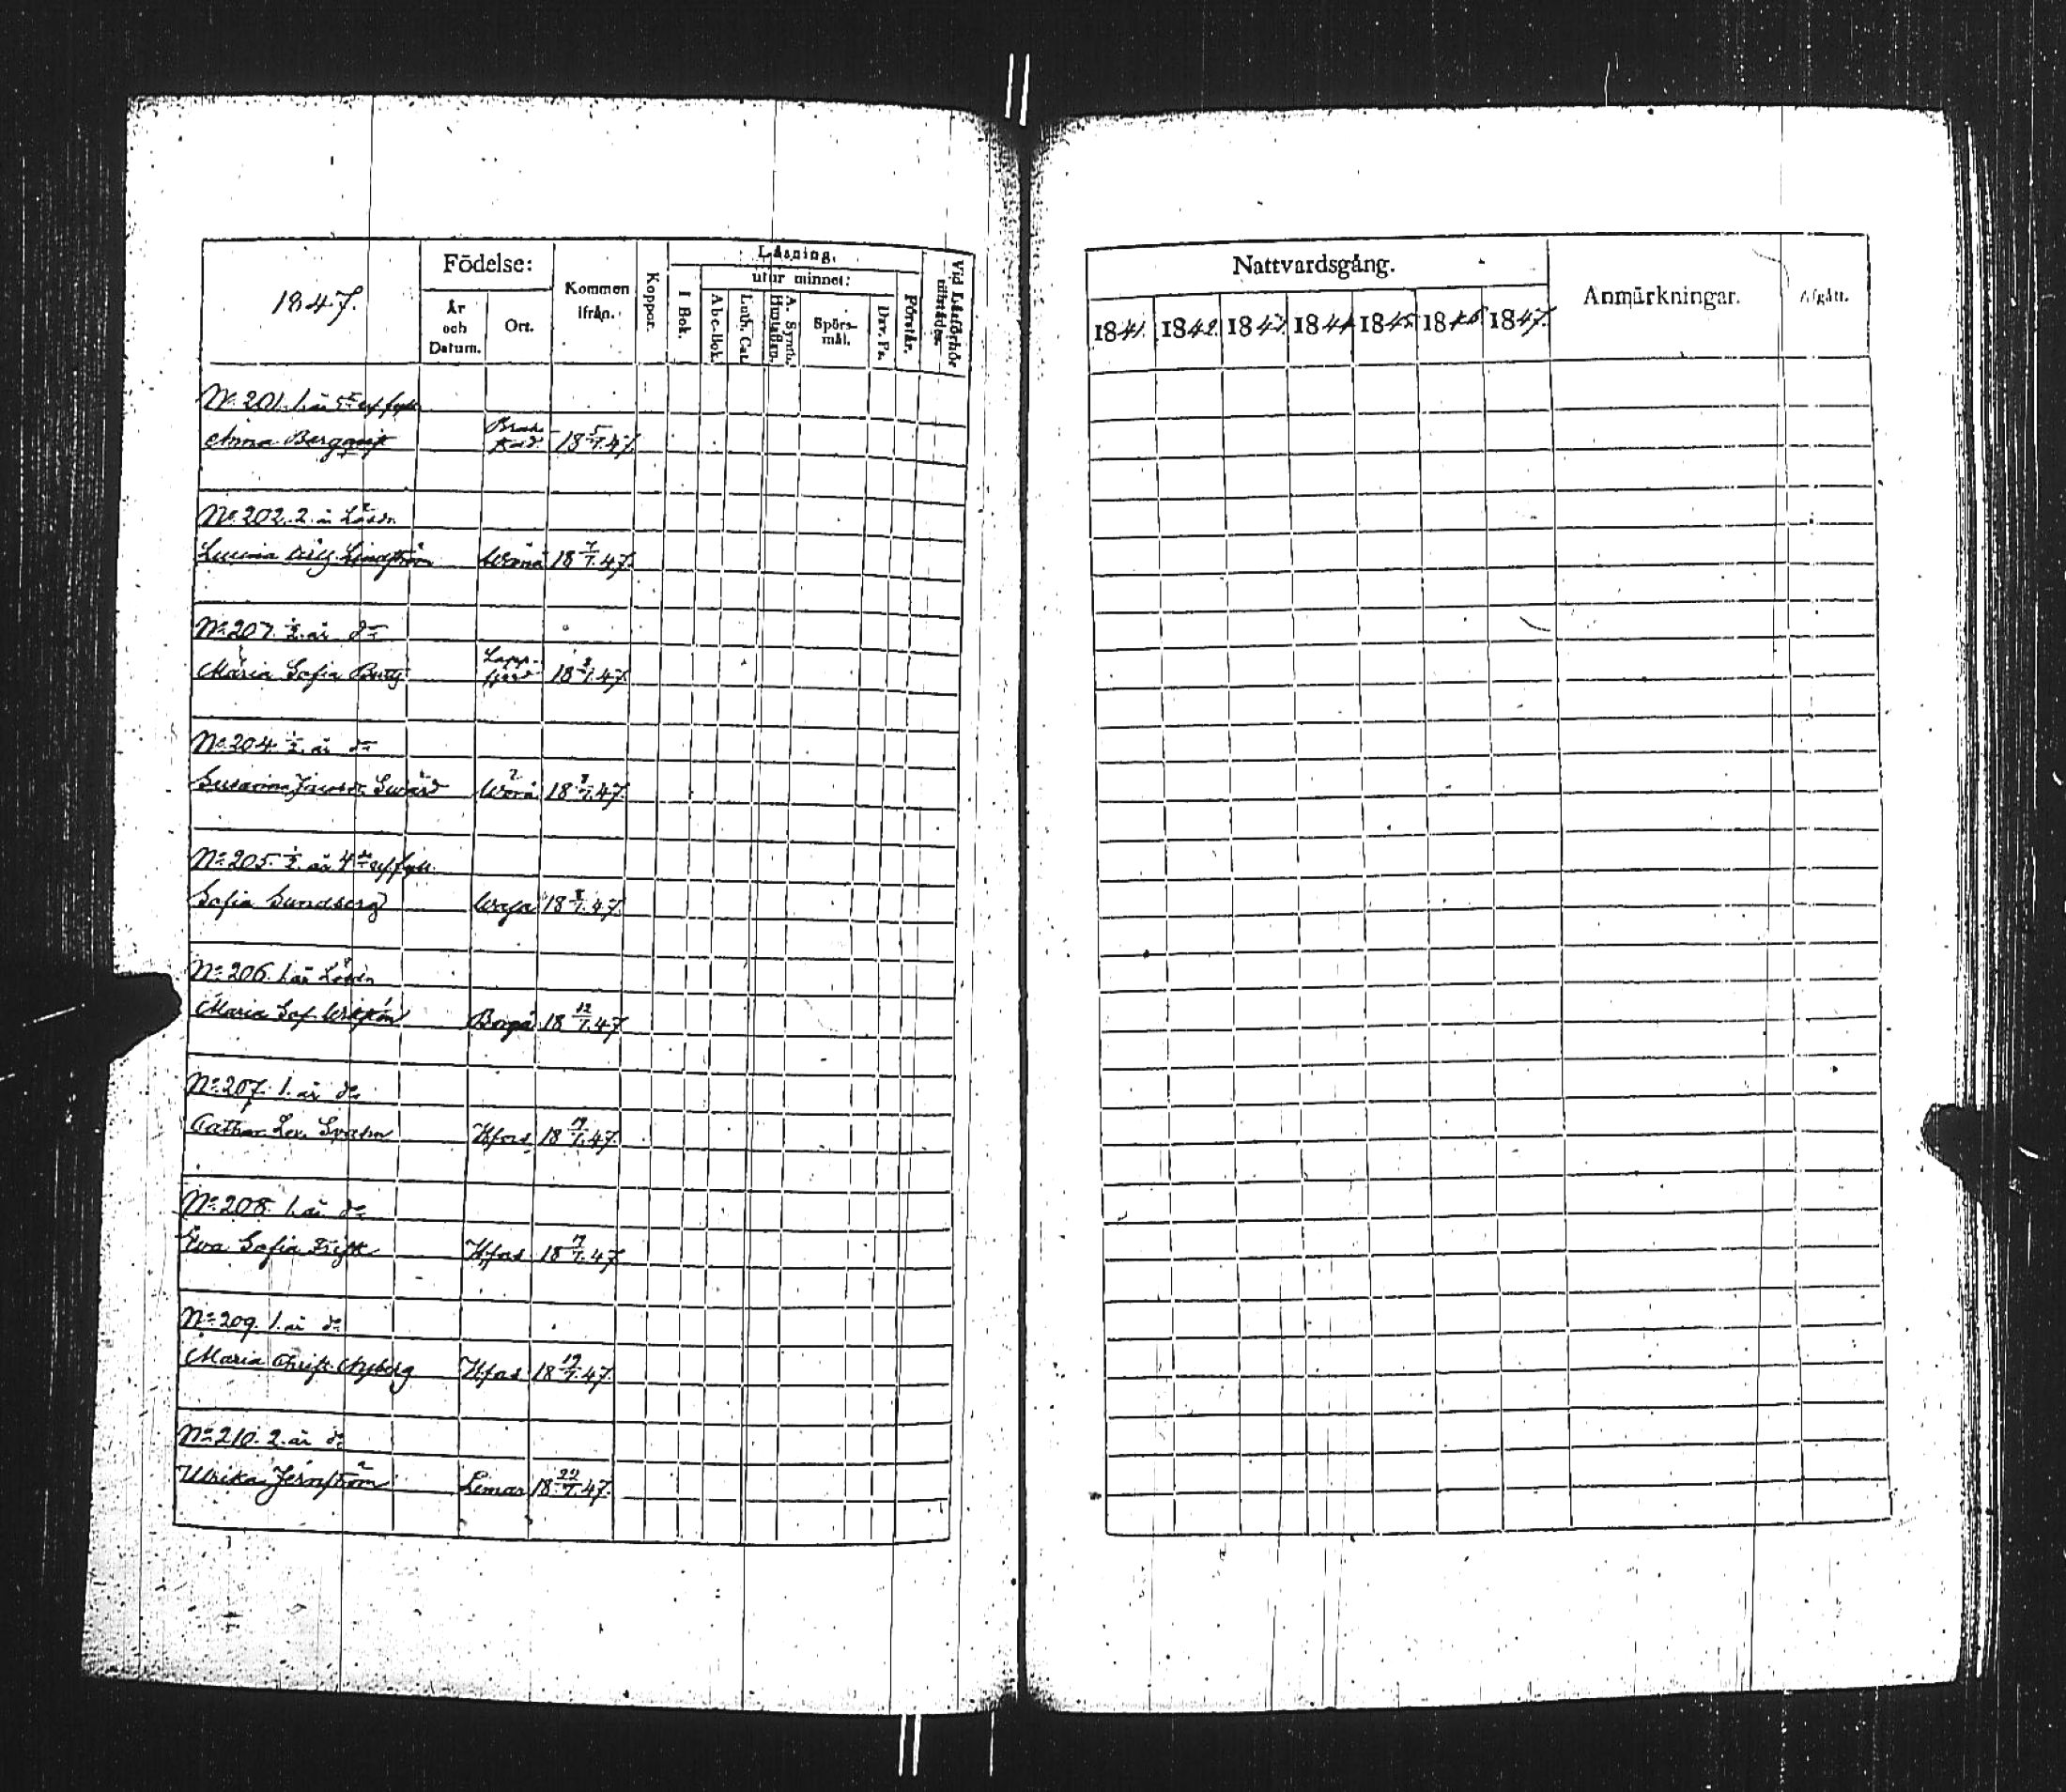 1847.
Födelse:
År och Datum.
Ort.
Kommen ifrån.
Koppor.
Läsning.
I Bok.
utur minnet:
Abc-Bok.
Luth. Cat.
A. Symb. Hustaflan.
Spörsmål.
Dav. Ps.
Förstår.
Vid Läsförhör tillstädes.
Nattvardsgång.
1841. 1842. 1843. 1844. 1845. 1846. 1847.
Anmärkningar.
Afgått.
No 201. 1. år 5te
Anna Bergqvist 18 5/7.47.
No 202. 2. år
Lindström Wörå 18 7/7.47.
No 207. ½. år do
Maria Sofia Lappfjärd 18 8/7.47.
No 204. ½. år do
Susanna Swärd Wörå 18 8/7.47.
No 205. ½. år 4de
Sofia Sundberg Wasa 18 8/7.47.
No 206. 1. år
Maria Sof. Borgå 18 12/7.47
No 207. 1. år do
Cathar. Lov. Hfors 18 /7.47.
No 208. 1. år do
Eva Sofia Hfors 18 /7.47
No 209. 1. år do
Maria Christ. Nyberg Hfors 18 19/7.47.
No 210. 2. år do
Ulrika Jernström Lemas 18 22/7.47.